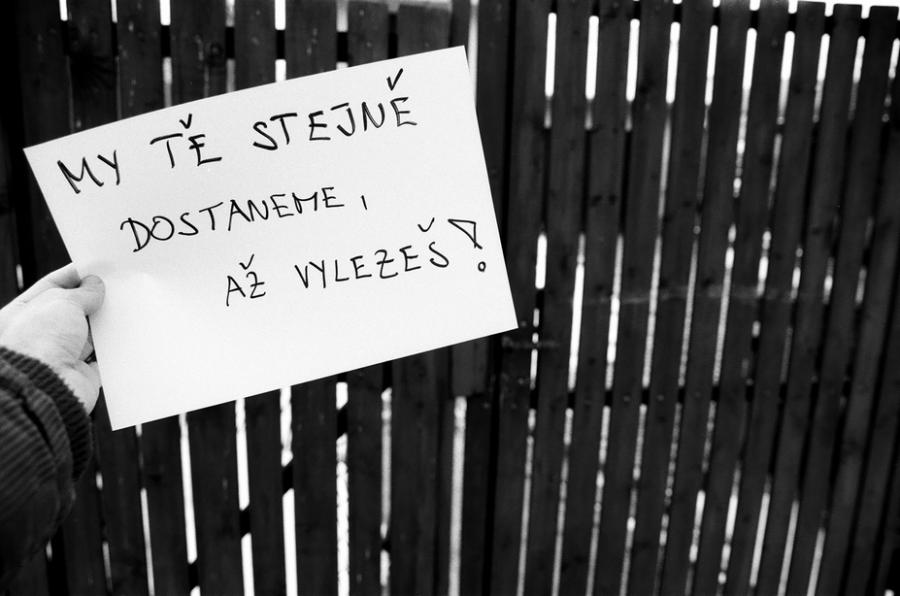 MY TĚ STEJNĚ
DOSTANEME,
AŽ VYLEZEŠ!